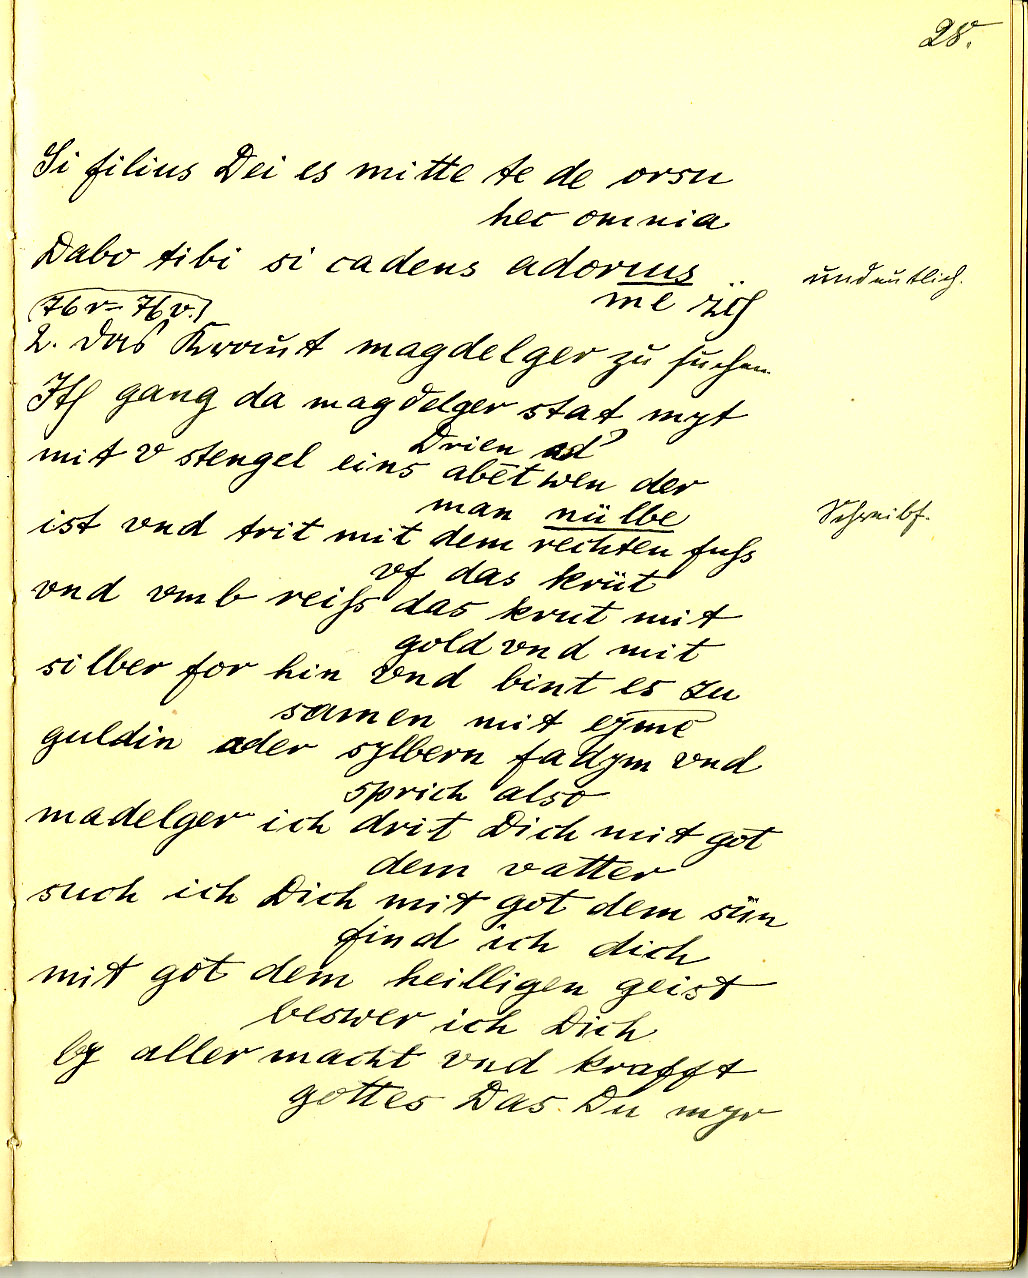 28.
Si filius Dei es mitte te de orsu
hec omnia
Dabo tibi si cadens adorius undeutlich.
me
76r–76v.
2. das Kraut magdelger zu suchen
Itz gang da magdelger stat myt
Drien ad
mit v stengel eins abet wen der
man nülbe Schreibf.
ist vnd trit mit dem rechten fuſs
vf das krüt
vnd vmb reiſs das krut mit
gold vnd mit
silber for hin vnd bint es zu
samen mit eyme
guldin ader sylbern fadym vnd
sprich also
madelger ich drit Dich mit got
dem vatter
such ich Dich mit got dem sün
find ich dich
mit got dem heilligen geist
beswer ich Dich
by aller macht vnd krafft
gottes Das Du myr